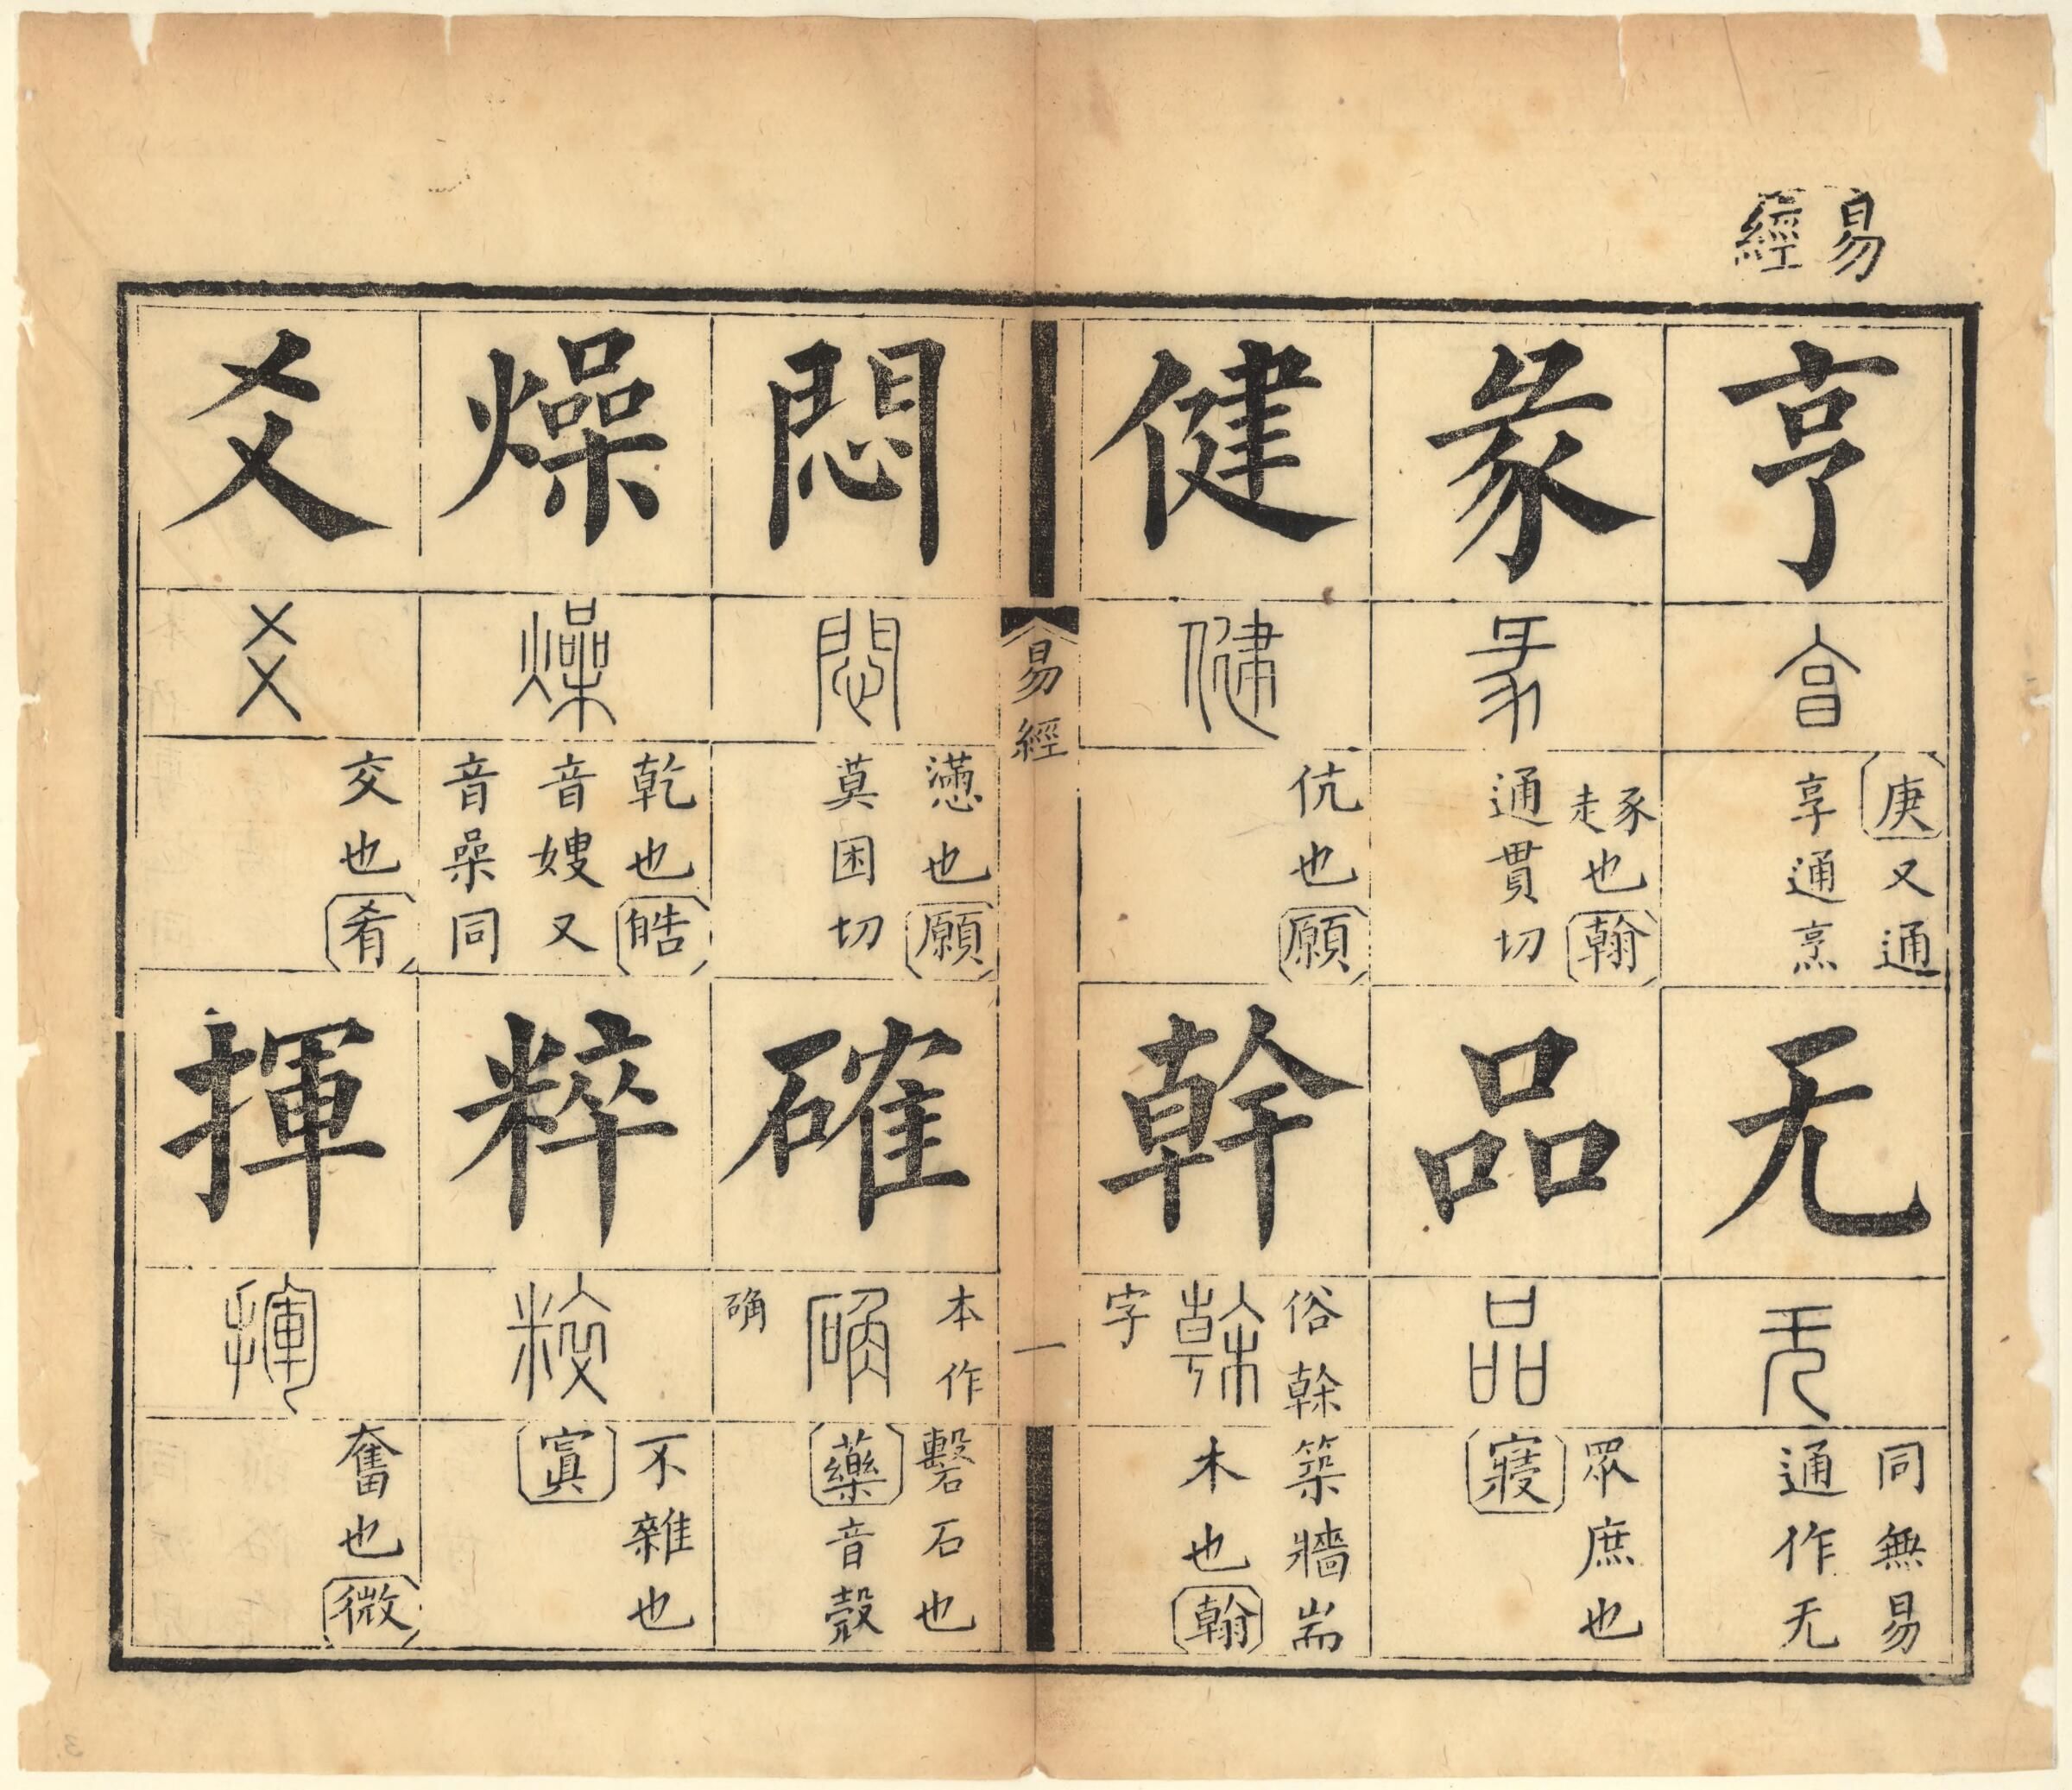 易
經
亨
庚又通
享通烹
无
同無易
通作无
彖
豕走也翰
通貫切
品
眾庶也
寑
健
伉也願
幹
俗榦
字
築牆耑
木也翰
易經
一
悶
懣也願
莫困切
確
本作
确
礊石也
藥音殼
燥
乾也皓
音嫂又
音喿同
粹
不雜也
寘
爻
交也肴
揮
奮也微